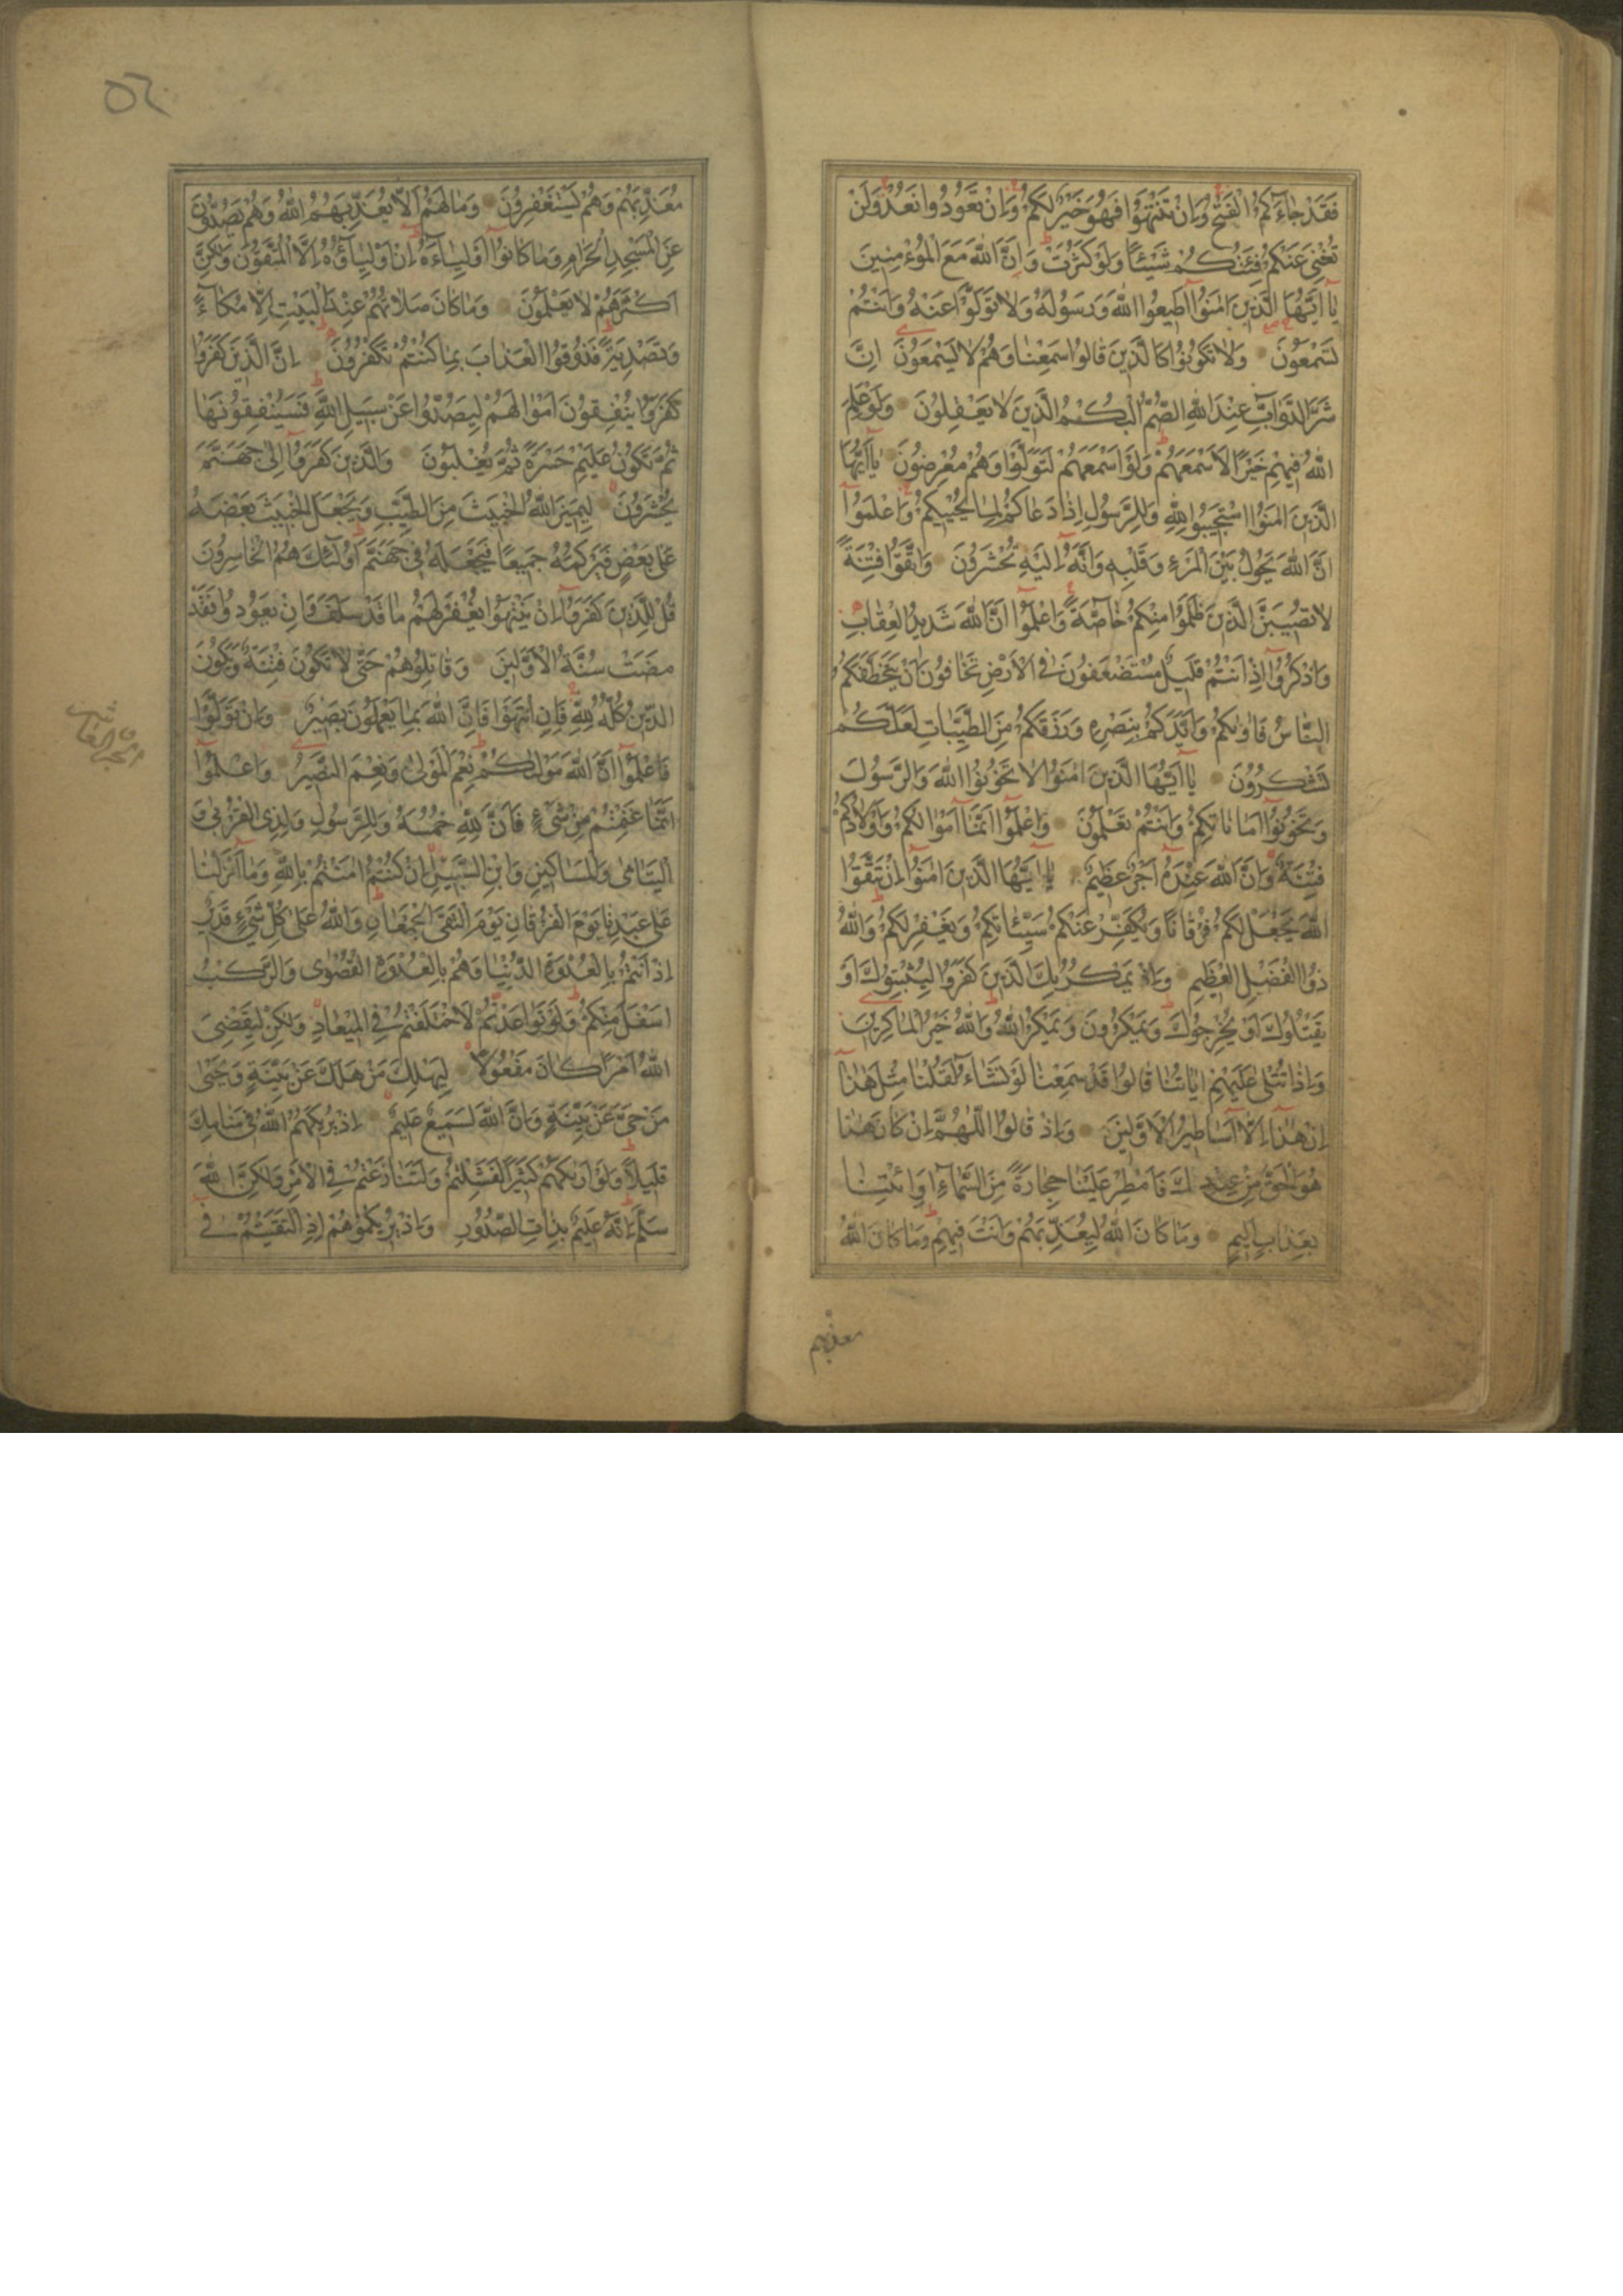 فَقَدْ جَاءَكُمُ الْفَتْحُ وَاِنْ تَنْتَهُوا فَهُوَ خَيْرٌ لَكُمْ وَاِنْ تَعُودُوا نَعُدْ وَلَنْ
تُغْنِيَ عَنْكُمْ فِئَتُكُمْ شَيْئًا وَلَوْ كَثُرَتْ وَاِنَّ اللّٰهَ مَعَ الْمُؤْمِنِينَ
يَا اَيُّهَا الَّذِينَ اٰمَنُوا اَطِيعُوا اللّٰهَ وَرَسُولَهُ وَلَا تَوَلَّوْا عَنْهُ وَاَنْتُمْ
تَسْمَعُونَ وَلَا تَكُونُوا كَالَّذِينَ قَالُوا سَمِعْنَا وَهُمْ لَا يَسْمَعُونَ اِنَّ
شَرَّ الدَّوَابِّ عِنْدَ اللّٰهِ الصُّمُّ الْبُكْمُ الَّذِينَ لَا يَعْقِلُونَ وَلَوْ عَلِمَ
اللّٰهُ فِيهِمْ خَيْرًا لَاَسْمَعَهُمْ وَلَوْ اَسْمَعَهُمْ لَتَوَلَّوْا وَهُمْ مُعْرِضُونَ يَا اَيُّهَا
الَّذِينَ اٰمَنُوا اسْتَجِيبُوا لِلّٰهِ وَلِلرَّسُولِ اِذَا دَعَاكُمْ لِمَا يُحْيِيكُمْ وَاعْلَمُوا
اَنَّ اللّٰهَ يَحُولُ بَيْنَ الْمَرْءِ وَقَلْبِهِ وَاَنَّهُ اِلَيْهِ تُحْشَرُونَ وَاتَّقُوا فِتْنَةً
لَا تُصِيبَنَّ الَّذِينَ ظَلَمُوا مِنْكُمْ خَاصَّةً وَاعْلَمُوا اَنَّ اللّٰهَ شَدِيدُ الْعِقَابِ
وَاذْكُرُوا اِذْ اَنْتُمْ قَلِيلٌ مُسْتَضْعَفُونَ فِي الْاَرْضِ تَخَافُونَ اَنْ يَتَخَطَّفَكُمُ
النَّاسُ فَاٰوٰيكُمْ وَاَيَّدَكُمْ بِنَصْرِهِ وَرَزَقَكُمْ مِنَ الطَّيِّبَاتِ لَعَلَّكُمْ
تَشْكُرُونَ يَا اَيُّهَا الَّذِينَ اٰمَنُوا لَا تَخُونُوا اللّٰهَ وَالرَّسُولَ
وَتَخُونُوا اَمَانَاتِكُمْ وَاَنْتُمْ تَعْلَمُونَ وَاعْلَمُوا اَنَّمَا اَمْوَالُكُمْ وَاَوْلَادُكُمْ
فِتْنَةٌ وَاَنَّ اللّٰهَ عِنْدَهُ اَجْرٌ عَظِيمٌ يَا اَيُّهَا الَّذِينَ اٰمَنُوا اِنْ تَتَّقُوا
اللّٰهَ يَجْعَلْ لَكُمْ فُرْقَانًا وَيُكَفِّرْ عَنْكُمْ سَيِّئَاتِكُمْ وَيَغْفِرْ لَكُمْ وَاللّٰهُ
ذُو الْفَضْلِ الْعَظِيمِ وَاِذْ يَمْكُرُ بِكَ الَّذِينَ كَفَرُوا لِيُثْبِتُوكَ اَوْ
يَقْتُلُوكَ اَوْ يُخْرِجُوكَ وَيَمْكُرُونَ وَيَمْكُرُ اللّٰهُ وَاللّٰهُ خَيْرُ الْمَاكِرِينَ
وَاِذَا تُتْلٰى عَلَيْهِمْ اٰيَاتُنَا قَالُوا قَدْ سَمِعْنَا لَوْ نَشَاءُ لَقُلْنَا مِثْلَ هٰذَا
اِنْ هٰذَا اِلَّا اَسَاطِيرُ الْاَوَّلِينَ وَاِذْ قَالُوا اللّٰهُمَّ اِنْ كَانَ هٰذَا
هُوَ الْحَقَّ مِنْ عِنْدِكَ فَاَمْطِرْ عَلَيْنَا حِجَارَةً مِنَ السَّمَاءِ اَوِ ائْتِنَا
بِعَذَابٍ اَلِيمٍ وَمَا كَانَ اللّٰهُ لِيُعَذِّبَهُمْ وَاَنْتَ فِيهِمْ وَمَا كَانَ اللّٰهُ
معذبهم
مُعَذِّبَهُمْ وَهُمْ يَسْتَغْفِرُونَ وَمَا لَهُمْ اَلَّا يُعَذِّبَهُمُ اللّٰهُ وَهُمْ يَصُدُّونَ
عَنِ الْمَسْجِدِ الْحَرَامِ وَمَا كَانُوا اَوْلِيَاءَهُ اِنْ اَوْلِيَاؤُهُ اِلَّا الْمُتَّقُونَ وَلٰكِنَّ
اَكْثَرَهُمْ لَا يَعْلَمُونَ وَمَا كَانَ صَلَاتُهُمْ عِنْدَ الْبَيْتِ اِلَّا مُكَاءً
وَتَصْدِيَةً فَذُوقُوا الْعَذَابَ بِمَا كُنْتُمْ تَكْفُرُونَ اِنَّ الَّذِينَ كَفَرُوا
كَفَرُوا يُنْفِقُونَ اَمْوَالَهُمْ لِيَصُدُّوا عَنْ سَبِيلِ اللّٰهِ فَسَيُنْفِقُونَهَا
ثُمَّ تَكُونُ عَلَيْهِمْ حَسْرَةً ثُمَّ يُغْلَبُونَ وَالَّذِينَ كَفَرُوا اِلٰى جَهَنَّمَ
يُحْشَرُونَ لِيَمِيزَ اللّٰهُ الْخَبِيثَ مِنَ الطَّيِّبِ وَيَجْعَلَ الْخَبِيثَ بَعْضَهُ
عَلٰى بَعْضٍ فَيَرْكُمَهُ جَمِيعًا فَيَجْعَلَهُ فِي جَهَنَّمَ اُولٰئِكَ هُمُ الْخَاسِرُونَ
قُلْ لِلَّذِينَ كَفَرُوا اِنْ يَنْتَهُوا يُغْفَرْ لَهُمْ مَا قَدْ سَلَفَ وَاِنْ يَعُودُوا فَقَدْ
مَضَتْ سُنَّةُ الْاَوَّلِينَ وَقَاتِلُوهُمْ حَتّٰى لَا تَكُونَ فِتْنَةٌ وَيَكُونَ
الدِّينُ كُلُّهُ لِلّٰهِ فَاِنِ انْتَهَوْا فَاِنَّ اللّٰهَ بِمَا يَعْمَلُونَ بَصِيرٌ وَاِنْ تَوَلَّوْا
فَاعْلَمُوا اَنَّ اللّٰهَ مَوْلٰيكُمْ نِعْمَ الْمَوْلٰى وَنِعْمَ النَّصِيرُ وَاعْلَمُوا
اَنَّمَا غَنِمْتُمْ مِنْ شَيْءٍ فَاَنَّ لِلّٰهِ خُمُسَهُ وَلِلرَّسُولِ وَلِذِي الْقُرْبٰى وَ
الْيَتَامٰى وَالْمَسَاكِينِ وَابْنِ السَّبِيلِ اِنْ كُنْتُمْ اٰمَنْتُمْ بِاللّٰهِ وَمَا اَنْزَلْنَا
عَلٰى عَبْدِنَا يَوْمَ الْفُرْقَانِ يَوْمَ الْتَقَى الْجَمْعَانِ وَاللّٰهُ عَلٰى كُلِّ شَيْءٍ قَدِيرٌ
اِذْ اَنْتُمْ بِالْعُدْوَةِ الدُّنْيَا وَهُمْ بِالْعُدْوَةِ الْقُصْوٰى وَالرَّكْبُ
اَسْفَلَ مِنْكُمْ وَلَوْ تَوَاعَدْتُمْ لَاخْتَلَفْتُمْ فِي الْمِيعَادِ وَلٰكِنْ لِيَقْضِيَ
اللّٰهُ اَمْرًا كَانَ مَفْعُولًا لِيَهْلِكَ مَنْ هَلَكَ عَنْ بَيِّنَةٍ وَيَحْيٰى
مَنْ حَيَّ عَنْ بَيِّنَةٍ وَاِنَّ اللّٰهَ لَسَمِيعٌ عَلِيمٌ اِذْ يُرِيكَهُمُ اللّٰهُ فِي مَنَامِكَ
قَلِيلًا وَلَوْ اَرٰيكَهُمْ كَثِيرًا لَفَشِلْتُمْ وَلَتَنَازَعْتُمْ فِي الْاَمْرِ وَلٰكِنَّ اللّٰهَ
سَلَّمَ اِنَّهُ عَلِيمٌ بِذَاتِ الصُّدُورِ وَاِذْ يُرِيكُمُوهُمْ اِذِ الْتَقَيْتُمْ فِي
الجزء العاشر